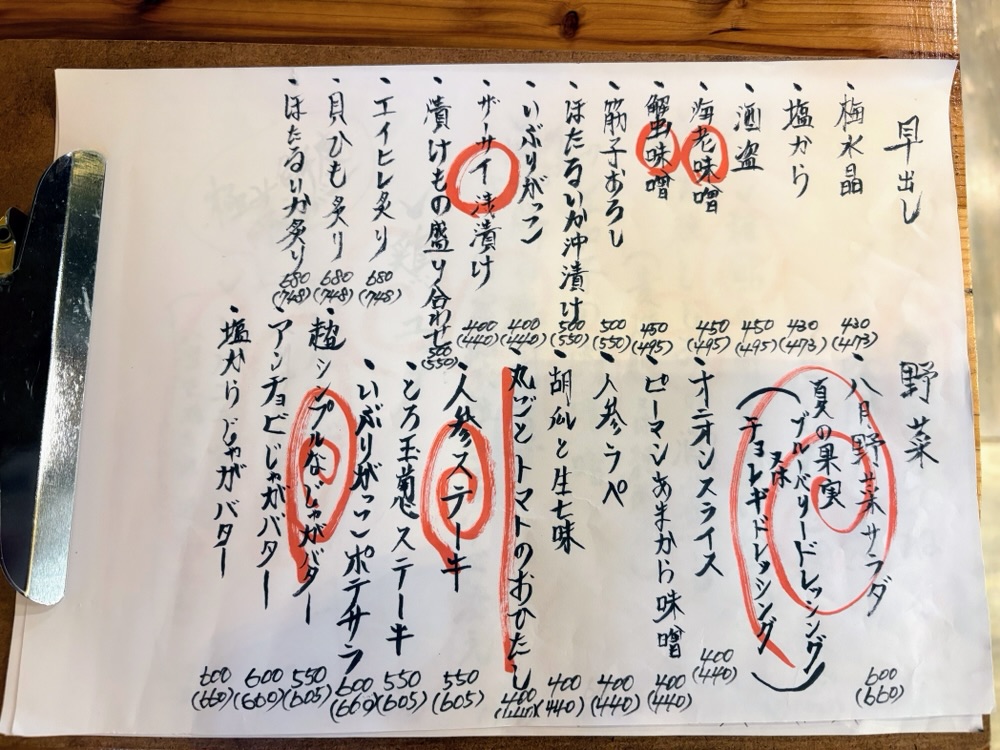 早出し
・梅水晶 430 (473)
・塩から 430 (473)
・酒盗 450 (495)
・海老味噌 450 (495)
・蟹味噌 450 (495)
・筋子おろし 500 (550)
・ほたるいか沖漬け 500 (550)
・いぶりがっこ 400 (440)
・ザーサイ浅漬け 400 (440)
・漬けもの盛り合わせ 500 (550)
・エイヒレ炙り 680 (748)
・貝ひも炙り 680 (748)
・ほたるいか炙り 680 (748)
野菜
・八月野菜サラダ 600 (660)
夏の果実
(ブルーベリードレッシング
又は
チョレギドレッシング)
・オニオンスライス 400 (440)
・ピーマンあまから味噌 400 (440)
・人参ラペ 400 (440)
・胡瓜と生七味 400 (440)
・丸ごとトマトのおひたし 400 (440)
・人参ステー牛 550 (605)
・とろ玉葱ステー牛 550 (605)
・いぶりがっこポテサラ 600 (660)
・超シンプルなじゃがバター 550 (605)
・アンチョビじゃがバター 600 (660)
・塩からじゃがバター 600 (660)